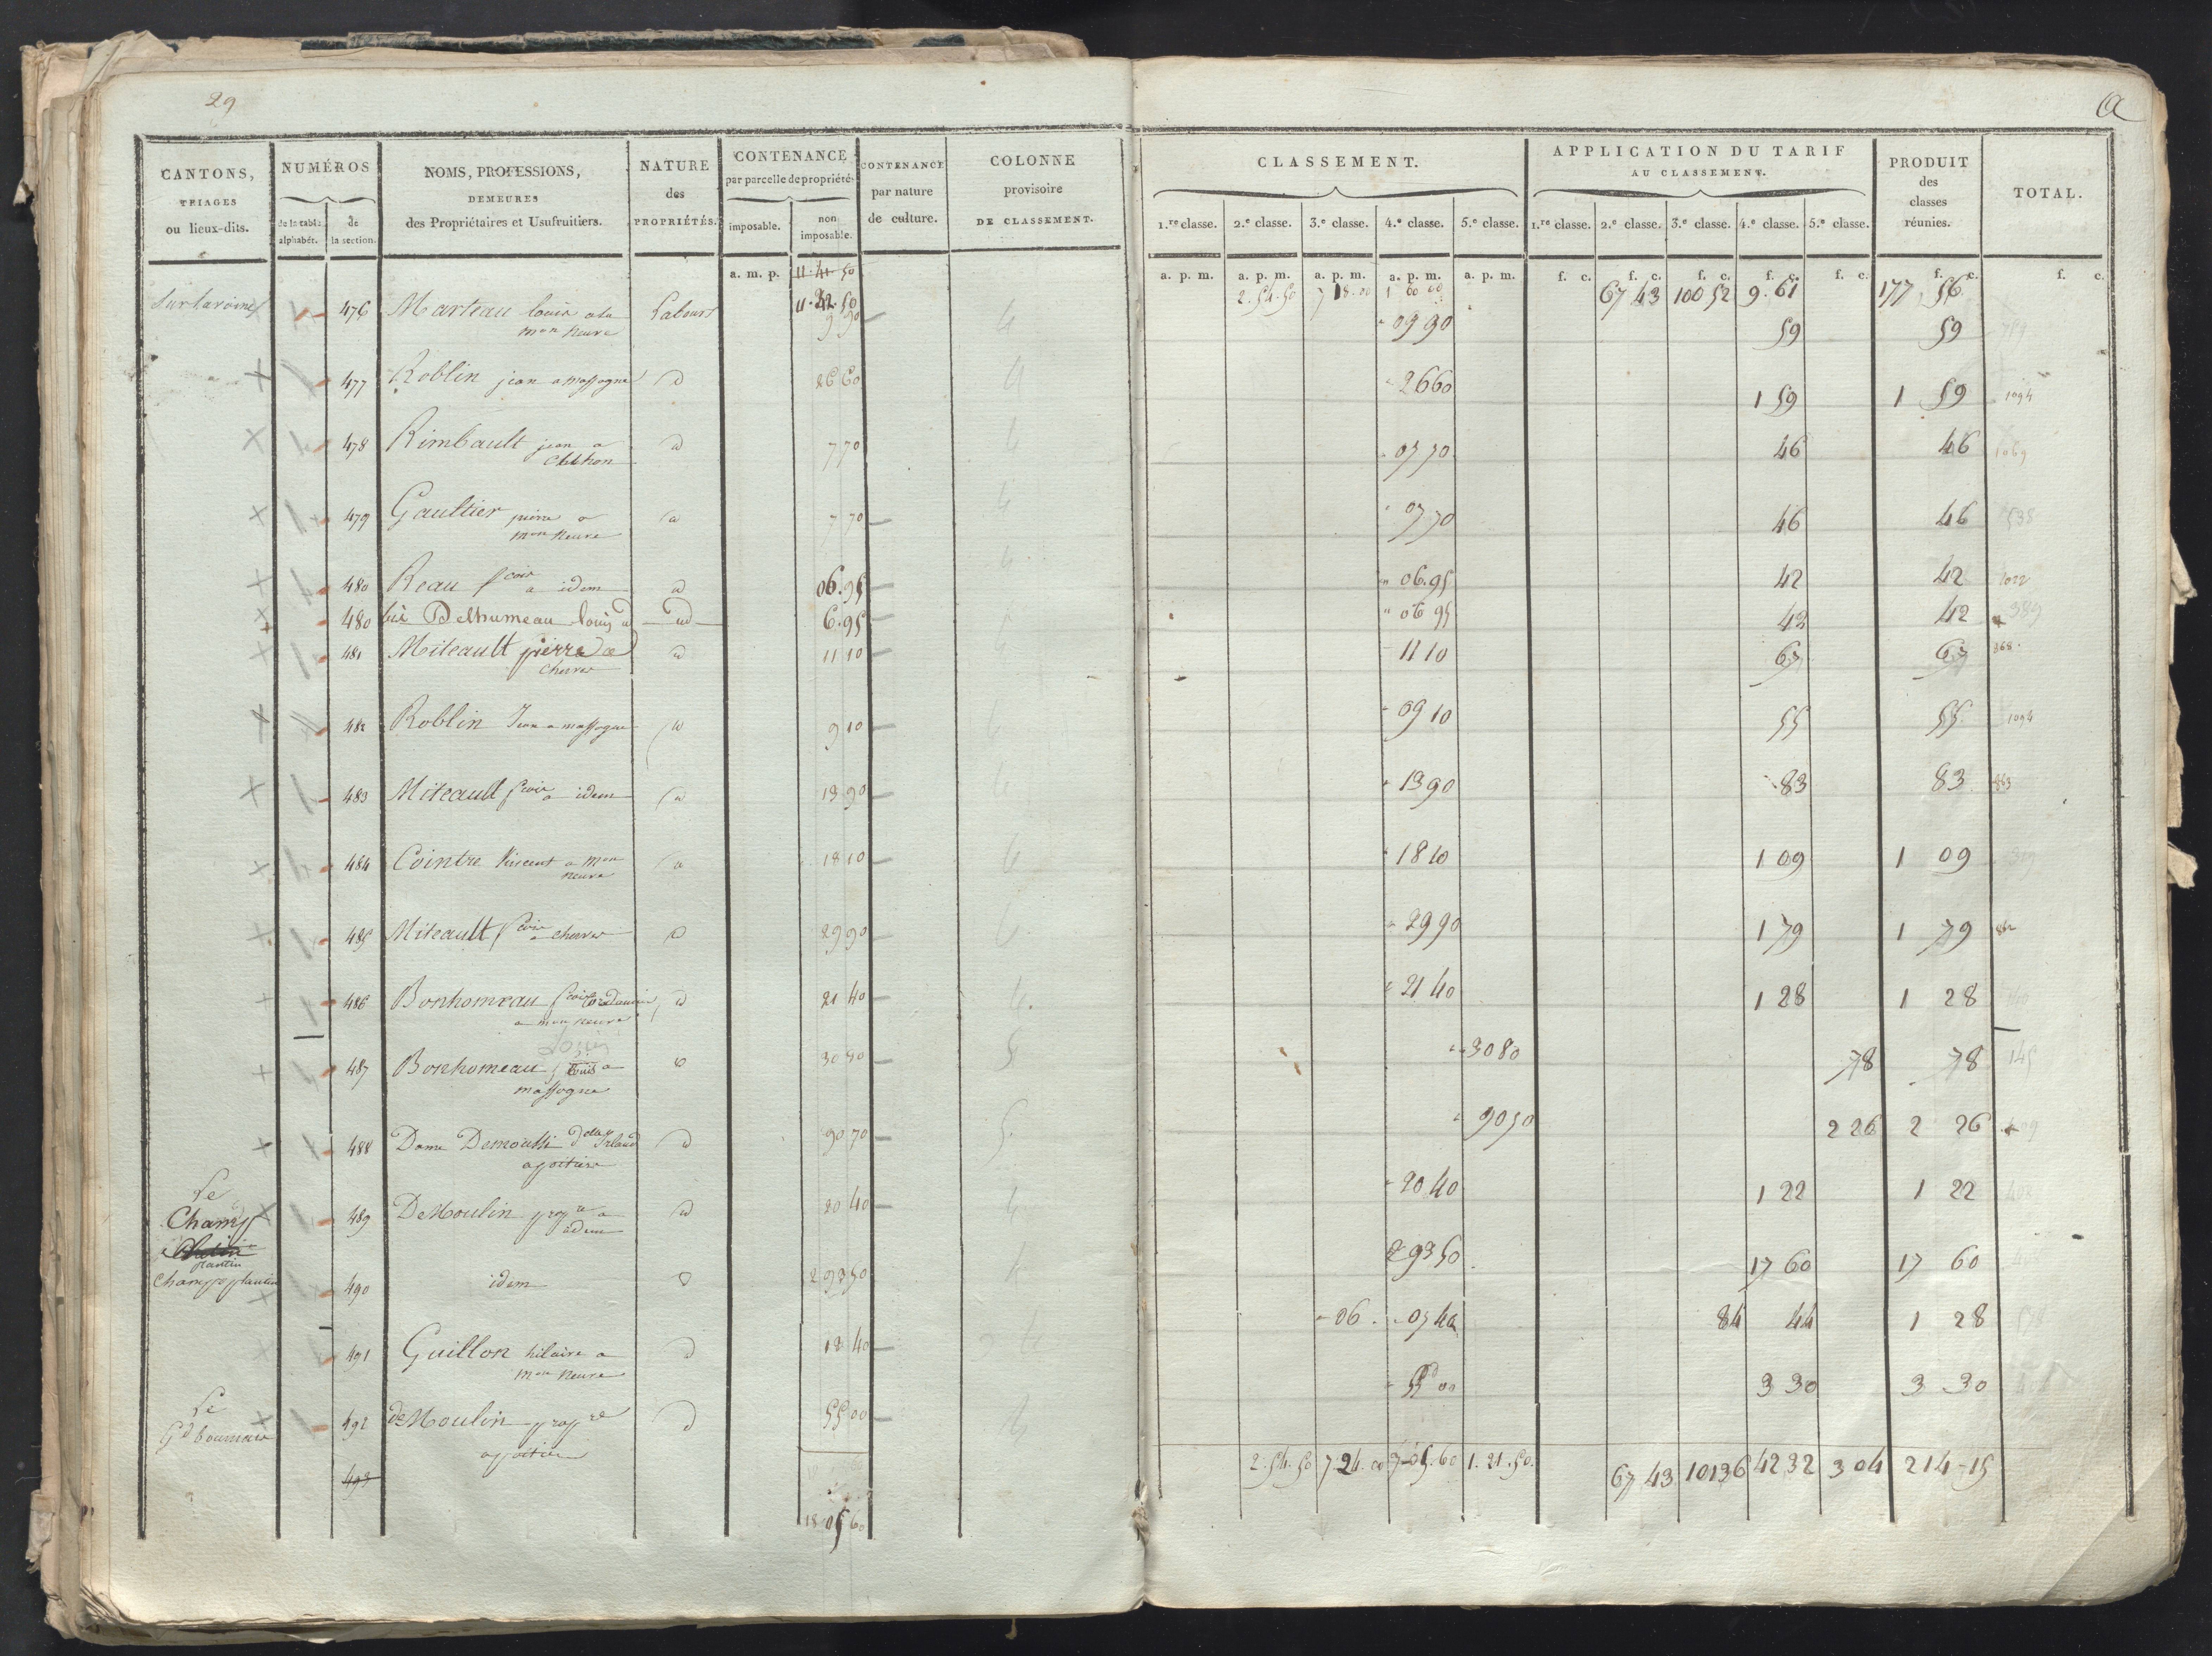 29
a
CANTONS, TRIAGES ou lieux-dits.
NUMÉROS
de la table alphabét.
de la section.
NOMS, PROFESSIONS, DEMEURES des Propriétaires et Usufruitiers.
NATURE des PROPRIÉTÉS.
CONTENANCE par parcelle de propriété
imposable.
non imposable.
CONTENANCE par nature de culture.
COLONNE provisoire DE CLASSEMENT.
CLASSEMENT.
1.re classe. 2.e classe. 3.e classe. 4.e classe. 5.e classe.
APPLICATION DU TARIF AU CLASSEMENT.
1.re classe. 2.e classe. 3.e classe. 4.e classe. 5.e classe.
PRODUIT des classes réunies.
TOTAL.
a. m. p. 11.41 50
a. p. m. a. p. m. a. p. m. a. p. m. a. p. m. f. c. f. c. f. c. f. c. f. c. f. c. f. c.
11.42.50 2.54.50 7 18.00 1 00 00 67 43 100 52 9.61 177 56
476 Marteau louis a la Labours 9 90 4 09 90 59 59
mon neure
477 Roblin jean a massogne d 26 60 4 26 60 1 59 1 59 1094
478 Rimbault jean a d 7 70 4 07 70 46 46 1069
479 Gaultier pierre a d 7 70 4 07 70 46 46 535
mon neure
480 Reau fcois a idem d 06.95 4 06.95 42 42 1022
480 bis Delhumeau louis d 6.95 06 95 42 42 389
481 Miteault pierre a d 11 10 11 10 67 67 868
cherves
482 Roblin Jean a massogne d 9 10 09 10 55 55 1094
483 Miteault fcois a idem d 13 90 13 90 83 83 863
484 Cointre Vincent a mon d 18 10 18 10 1 09 1 09
neure
485 Miteault fcois a cherves d 29 90 29 90 1 79 1 79
486 Bonhomeau fcois d 21 40 4 21 40 1 28 1 28
a mon neure
Louis
487 Bonhomeau louis a d 30 80 5 30 80 78 78 145
massogne
488 Dame Demoussi dela Irland d 90 70 5 90 70 2 26 2 26 409
a poitiers
Le
Champ
489 DeMoulin propre a d 20 40 4 20 40 1 22 1 22
idem
plantin
Champ plantin 490 idem d 2 93 50 4 2 93 50 17 60 17 60
491 Guillon hilaire a d 13 40 06 07 40 84 44 1 28
mon neure
Le
Gd 492 deMoulin propre d 55 00 55 00 3 30 3 30
a poitiers
493 2.54.50 7 24.00 7 05.60 1.21.50. 67 43 101 36 42 32 3 04 214-15
18 05 60